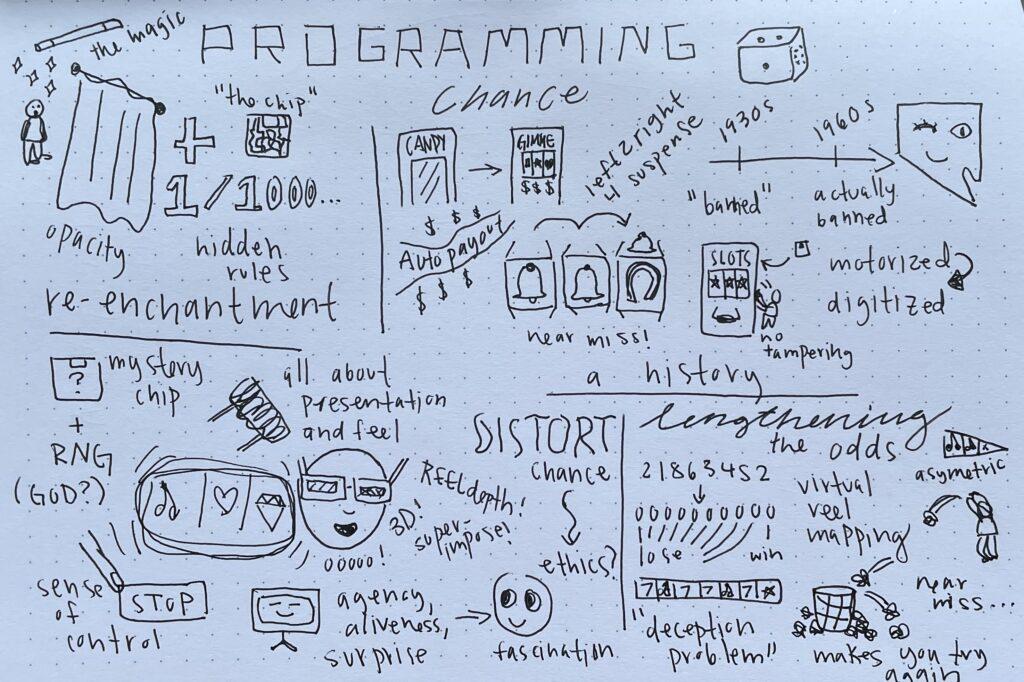 PROGRAMMING
chance
the magic
"the chip"
1/1000...
opacity
hidden
rules
re-enchantment
CANDY
GIMME
$$$
left 2 right
4 suspense
1930s
1960s
"banned"
actually
banned
$ $ $
Auto payout
$ $ $
near miss!
SLOTS
motorized
digitized
no
tampering
a history
?
mystery
chip
+
RNG
(GOD?)
all about
presentation
and feel
REEL depth!
3D!
super-
impose!
ooooo!
sense
of
control
STOP
agency,
aliveness,
surprise
fascination
DISTORT
chance
ethics?
lengthening
the odds
21863452
0000000000
lose
win
virtual
reel
mapping
asymetric
"deception
problem"
near
miss...
makes you try
again